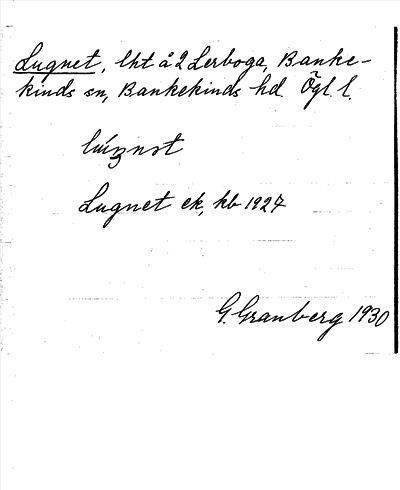 Lugnet, lht å 2 Lerboga, Banke-
kinds sn, Bankekinds hd. Ögl. l.
Lugnet ek, kb 1927
G. Granberg 1930